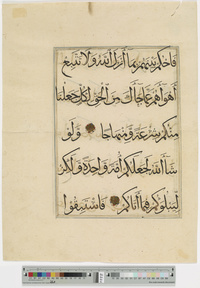 فاحكم بينهم بما أنزل الله ولا تتبع
أهواءهم عما جاءك من الحق لكل جعلنا
منكم شرعة ومنهاجا ولو
شاء الله لجعلكم أمة واحدة ولكن
ليبلوكم فيما آتاكم فاستبقوا